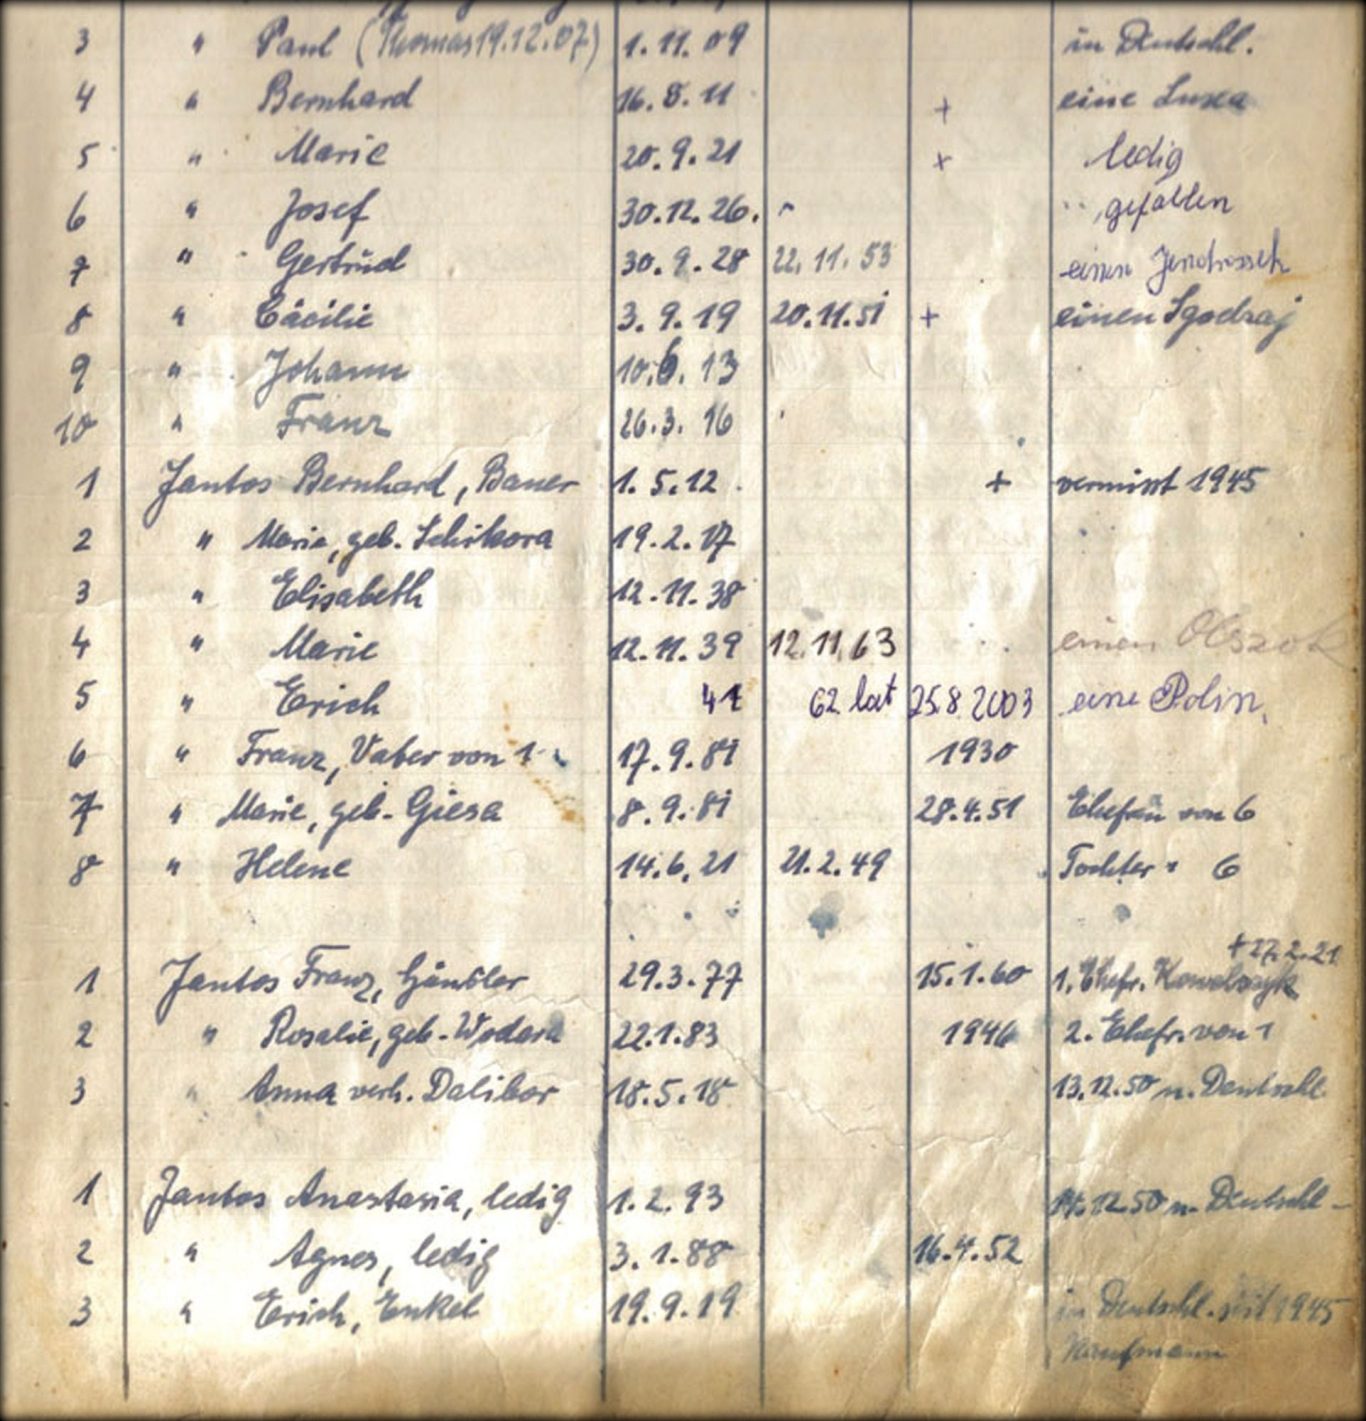 3 " Paul (Thomas 19.12.07) 1.11.09 in Deutschl.
4 " Bernhard 16.8.11 + eine
5 " Marie 20.9.21 x ledig
6 " Josef 30.12.26. " gefallen
7 " Gertrud 30.9.28 22.11.53 einen Jendrossek
8 " Cäcilie 3.9.19 20.11.51 + einen Sgodzaj
9 " Johann 10.6.13
10 " Franz 26.3.16
1 Jantos Bernhard, Bauer 1.5.12 + vermisst 1945
2 " Marie, geb. Schikora 19.2.17
3 " Elisabeth 12.11.38
4 " Marie 12.11.39 12.11.63 einen Olszok
5 " Erich 41 62 lat 25.8.2003 eine Polin.
6 " Franz, Vater von 1 17.9.81 1930
7 " Marie, geb. Giesa 8.9.81 28.4.51 Ehefrau von 6
8 " Helene 14.6.21 21.2.49 Tochter " 6
+27.2.21
1 Jantos Franz, Händler 29.3.77 15.1.60 1. Ehefr. Kowalczyk
2 " Rosalie, geb. 22.1.83 1946 2. Ehefr. von 1
3 " Anna verh. Dalibor 18.5.18 13.12.50 n. Deutschl.
1 Jantos Anastasia, ledig 1.2.93 12.50 n. Deutschl.
2 " Agnes, ledig 3.1.88 16.4.52
3 " Erich, Enkel 19.9.19 in Deutschl. seit 1945
Kaufmann